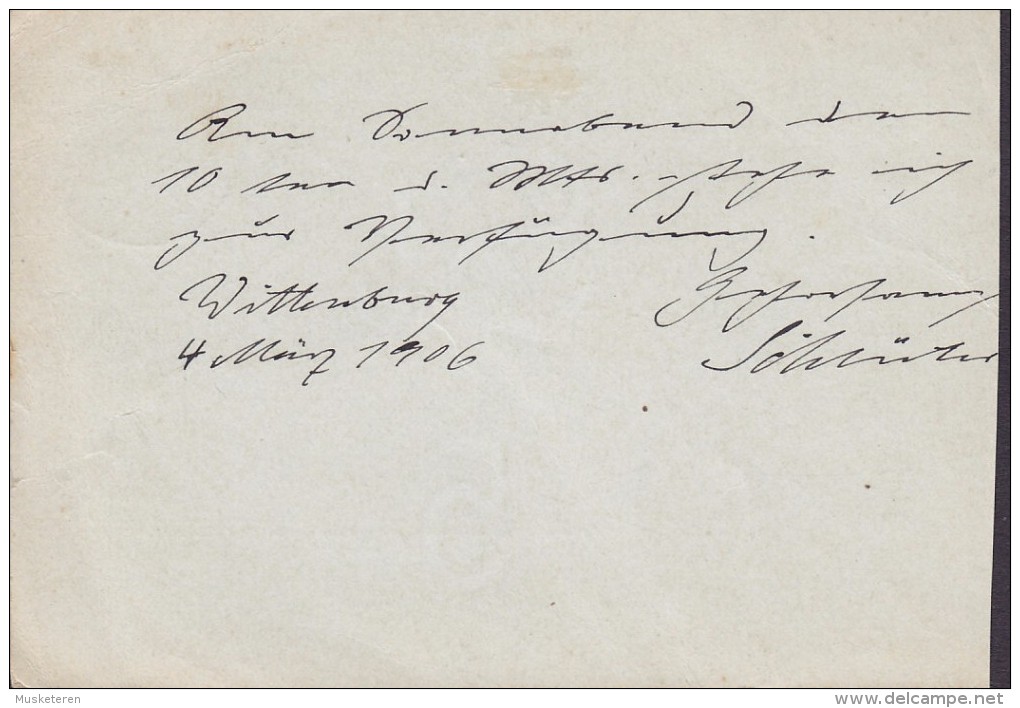 Am Sonnabend den
10 ten d. Mts. stehe ich
zur Verfügung.
Wittenburg Gehorsamst
4 März 1906 Schlüter
Musketeren www.delcampe.net